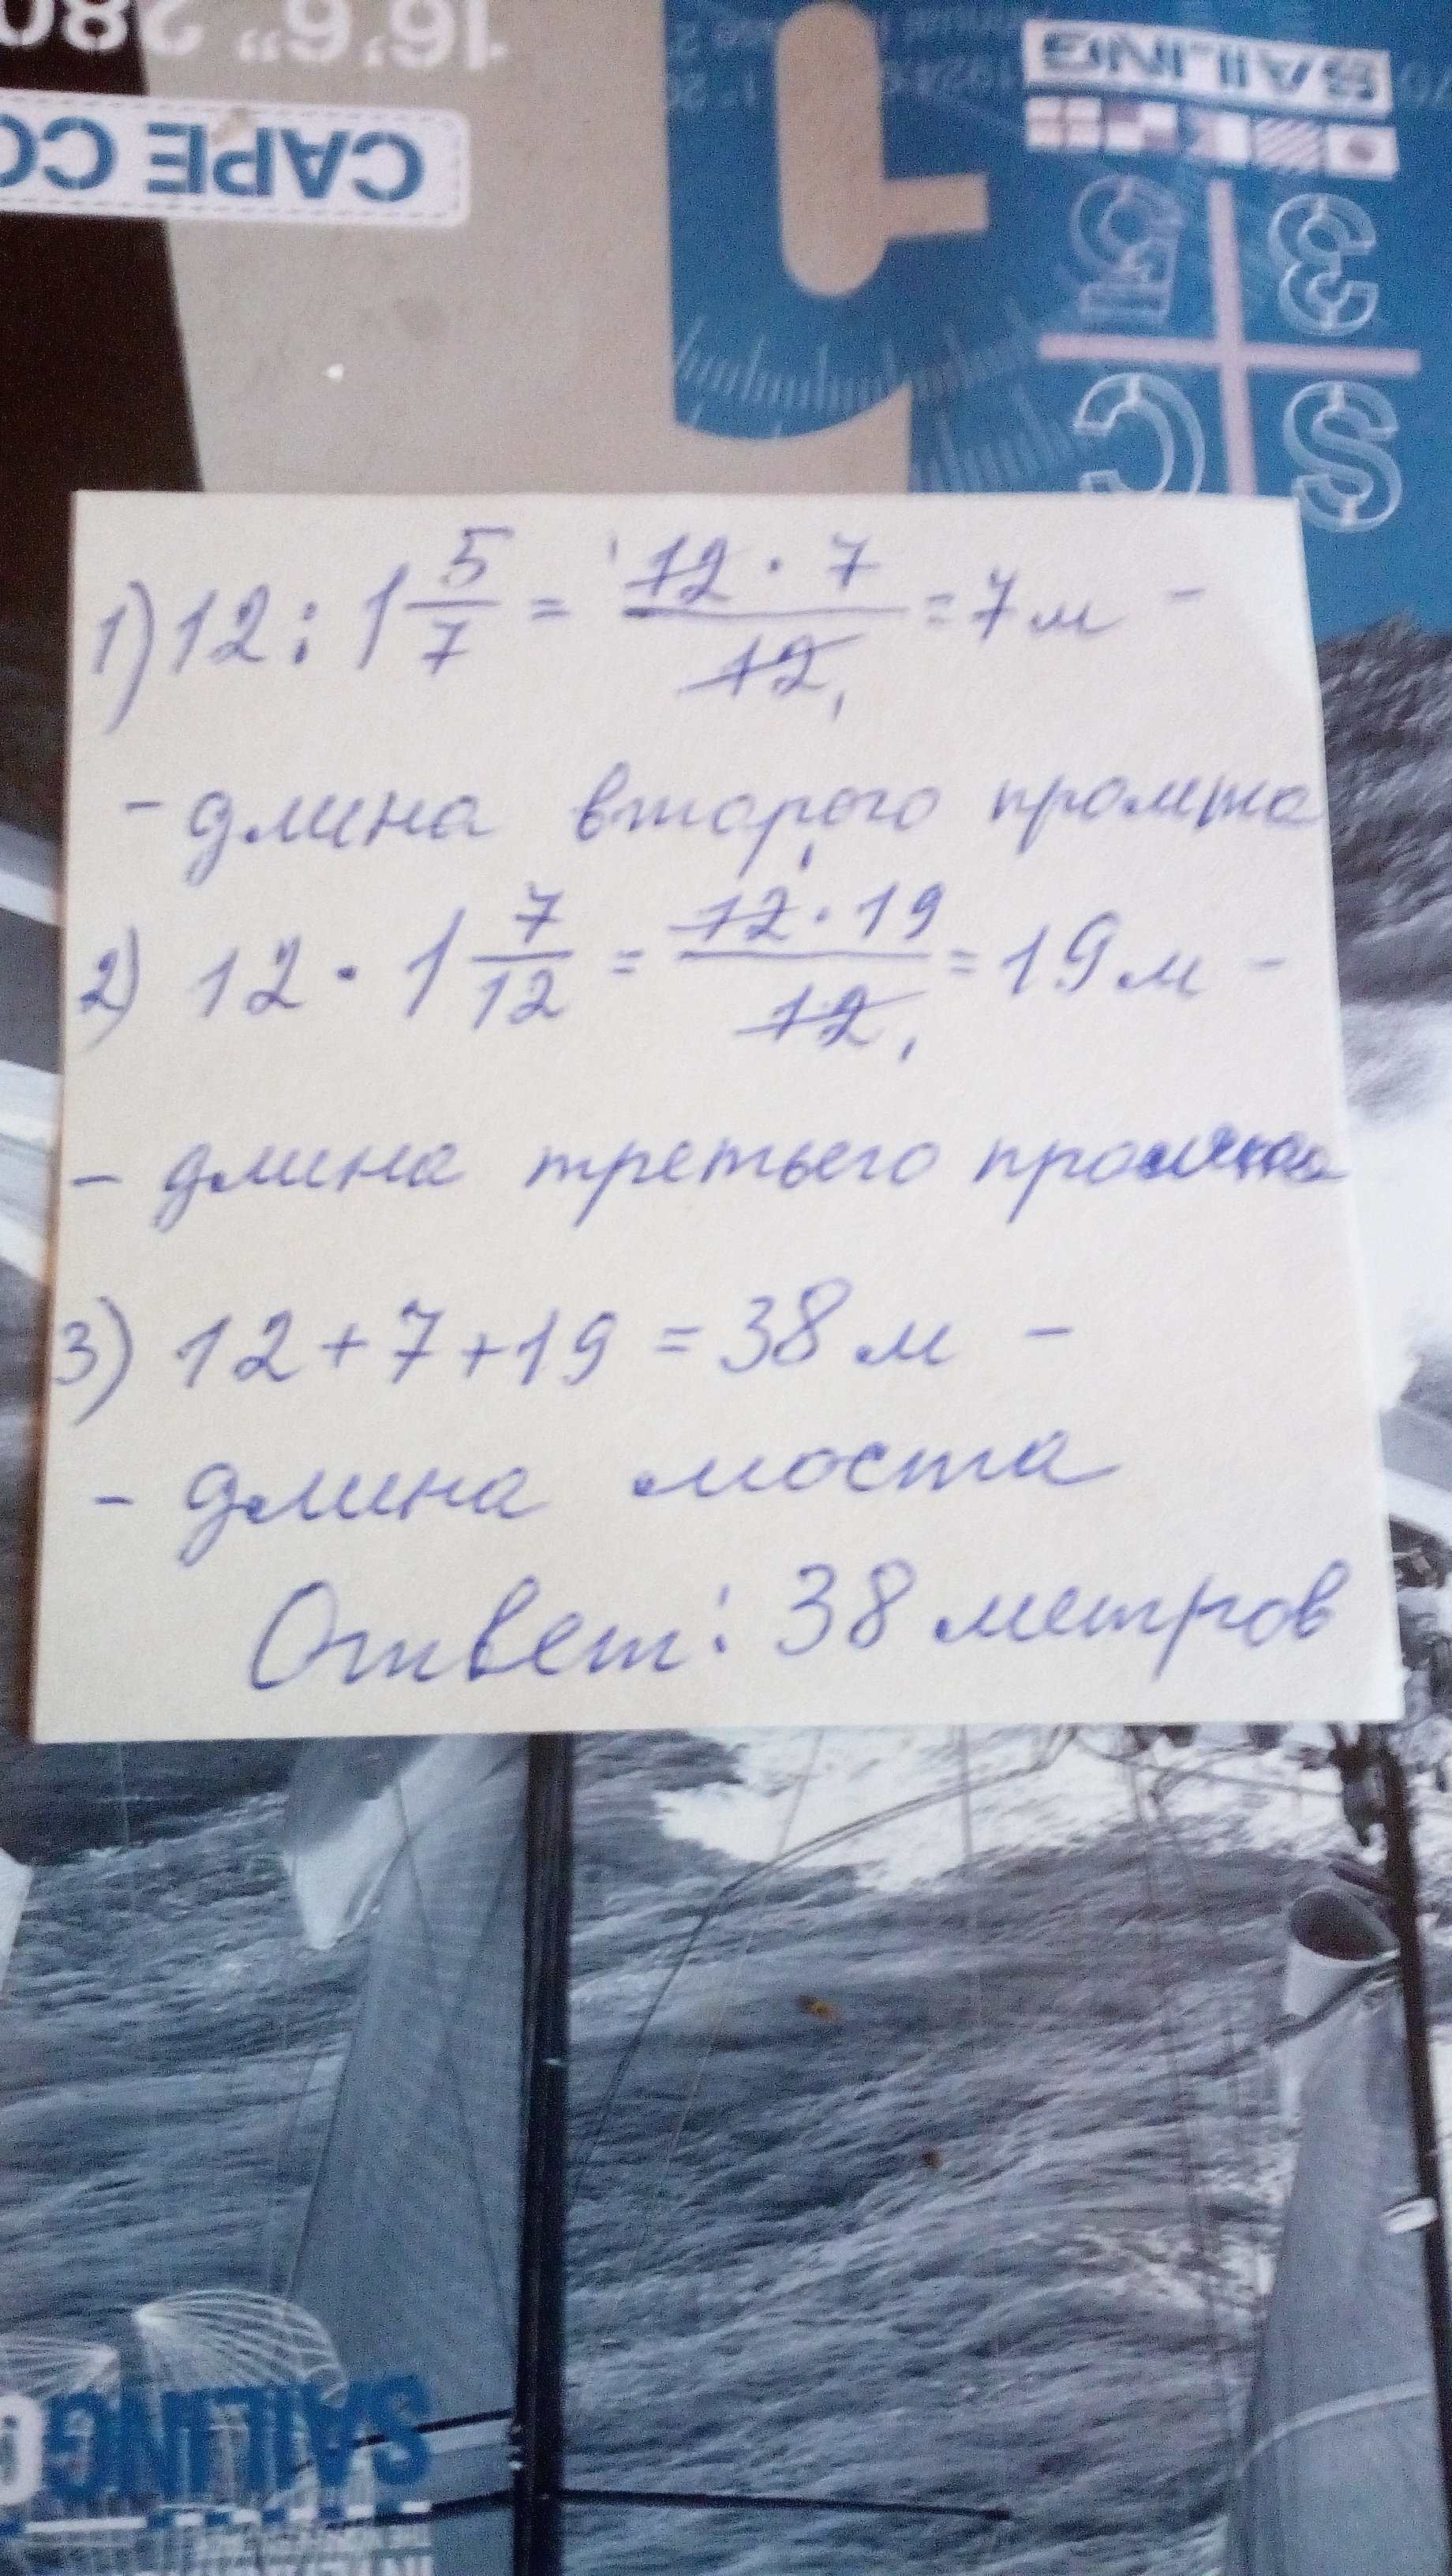 16'6" 280
CAPE CO
SAILING
3
S
C
1) 12 : 1 5/7 = 12 · 7 / 12 = 7 м -
- длина второго промта
2) 12 · 1 7/12 = 12 · 19 / 12 = 19 м -
- длина третьего
3) 12 + 7 + 19 = 38 м -
- длина моста
Ответ: 38 метров
SAILING